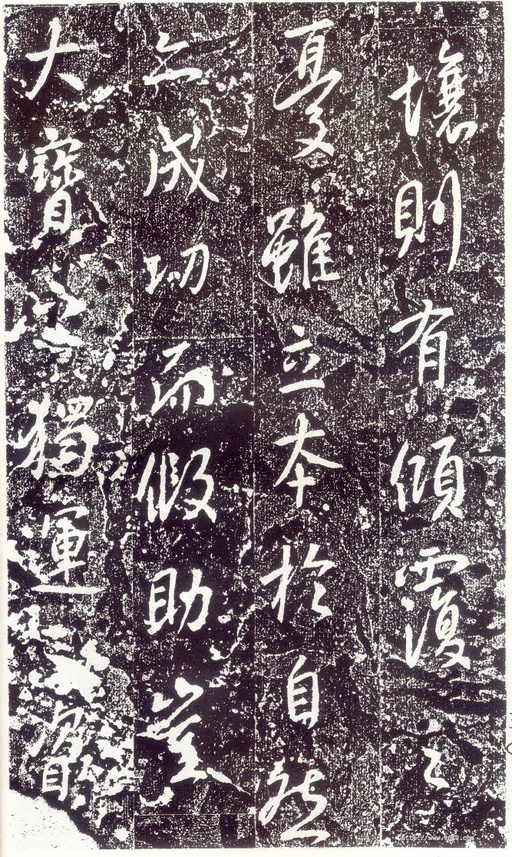 壤則有傾覆之
憂雖立本於自然
亦成功而假助豈
大寶之獨運資